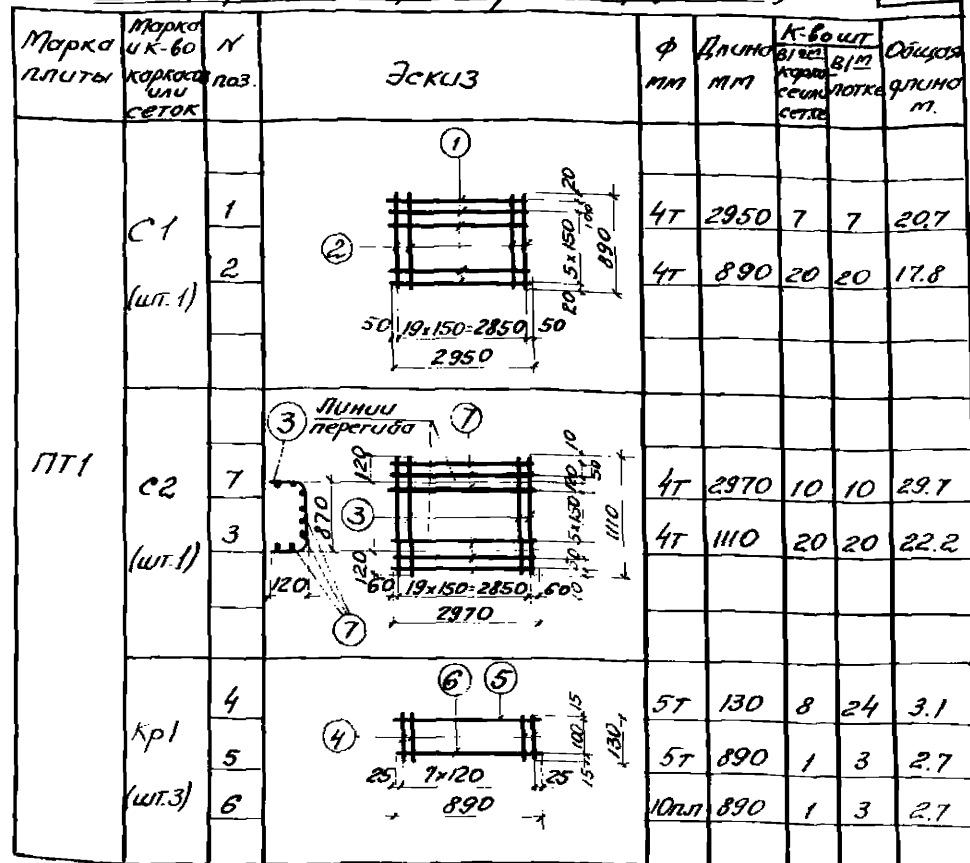 Марка плиты
Марка и к-во каркасов или сеток
N поз.
Эскиз
ф мм
Длина мм
К-во шт
В/ карка се или сетке
В/m лотке
Общая длина м.
ПТ1
С1
(шт. 1)
1
2
1
2
20
100
5х150
890
20
50 19х150=2850 50
2950
4т 2950 7 7 20,7
4т 890 20 20 17.8
С2
(шт.1)
7
3
3
Линии перегиба
7
3
7
870
120
120
120
10
50
120
5х150
1110
10
60 19х150=2850 60
2970
4т 2970 10 10 29.7
4т 1110 20 20 22.2
Кр1
(шт.3)
4
5
6
6 5
4
15
100
130
15
25 7х120 25
890
5т 130 8 24 3.1
5т 890 1 3 2.7
10пл 890 1 3 2.7